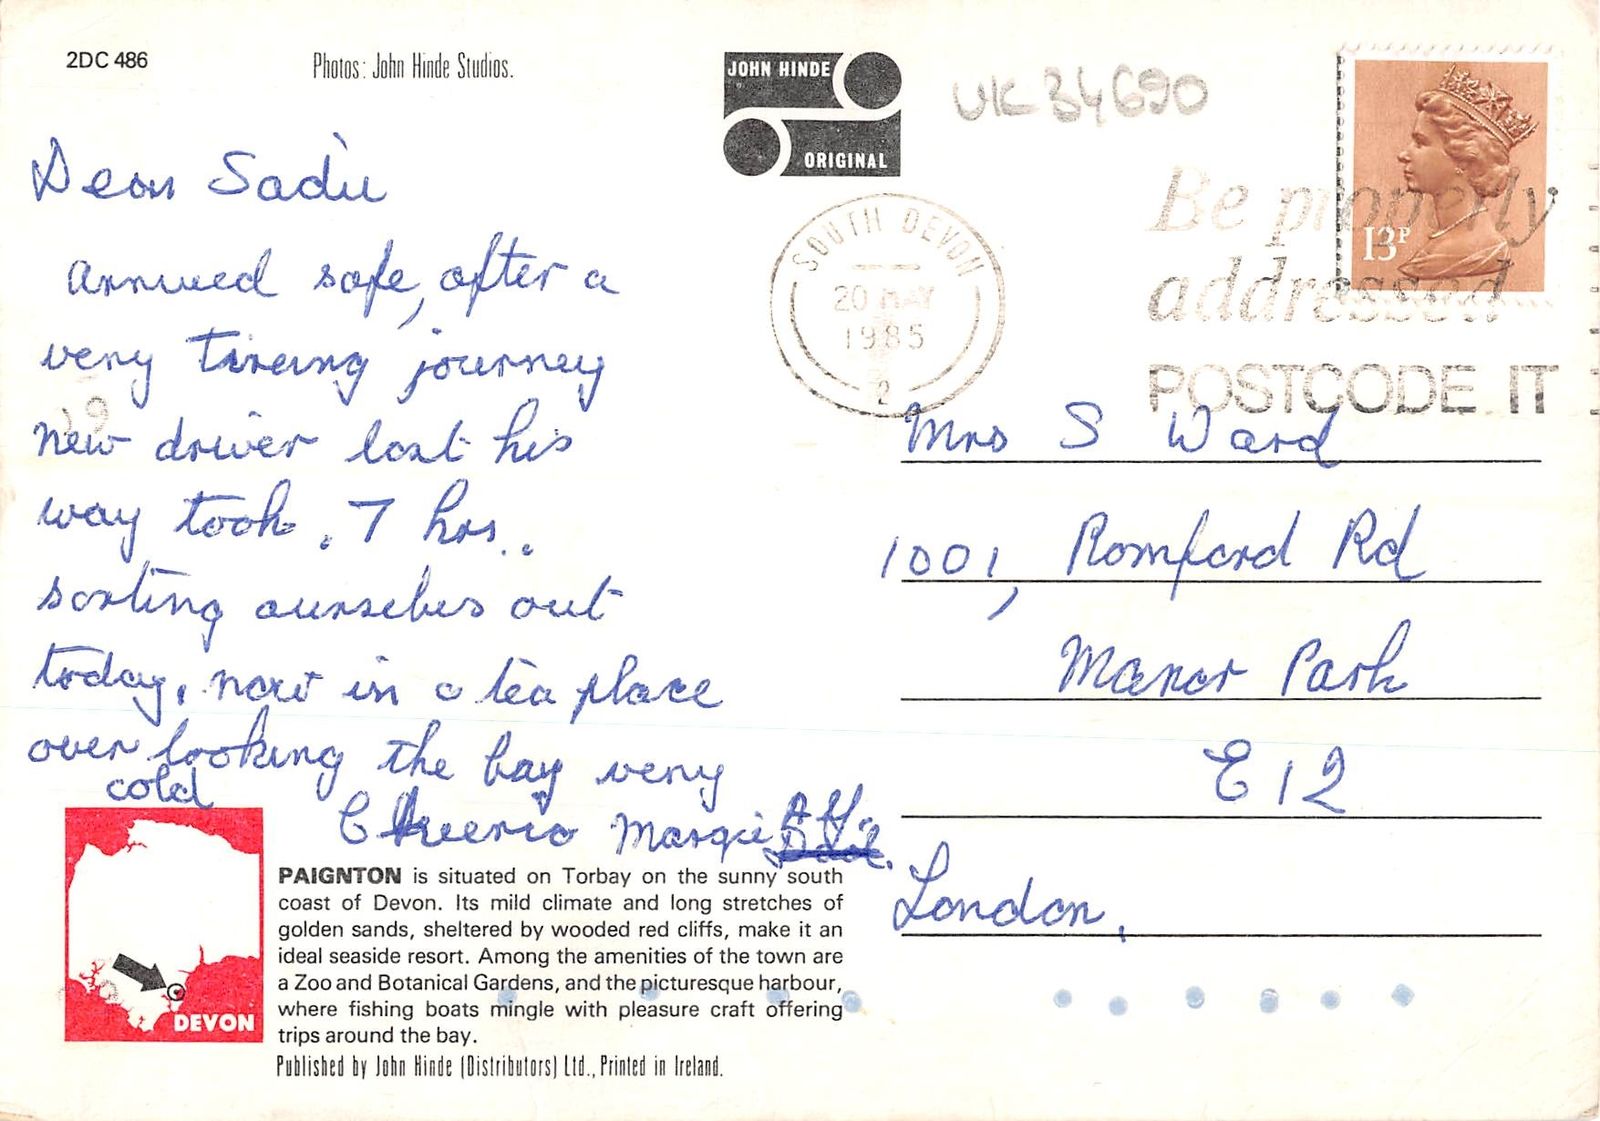 2DC 486
Photos: John Hinde Studios.
JOHN HINDE
ORIGINAL
UK 34690
SOUTH DEVON
20 MAY
1985
2
Be properly
addressed
POSTCODE IT
13P
Dear Sadie
Arrived safe, after a
very tireing journey
new driver lost his
way took. 7 hrs..
sorting ourselves out
today, now in a tea place
over looking the bay very
cold
Cheerio Margie
Mrs S Ward
1001, Romford Rd
Manor Park
E12
London,
DEVON
PAIGNTON is situated on Torbay on the sunny south
coast of Devon. Its mild climate and long stretches of
golden sands, sheltered by wooded red cliffs, make it an
ideal seaside resort. Among the amenities of the town are
a Zoo and Botanical Gardens, and the picturesque harbour,
where fishing boats mingle with pleasure craft offering
trips around the bay.
Published by John Hinde (Distributors) Ltd., Printed in Ireland.